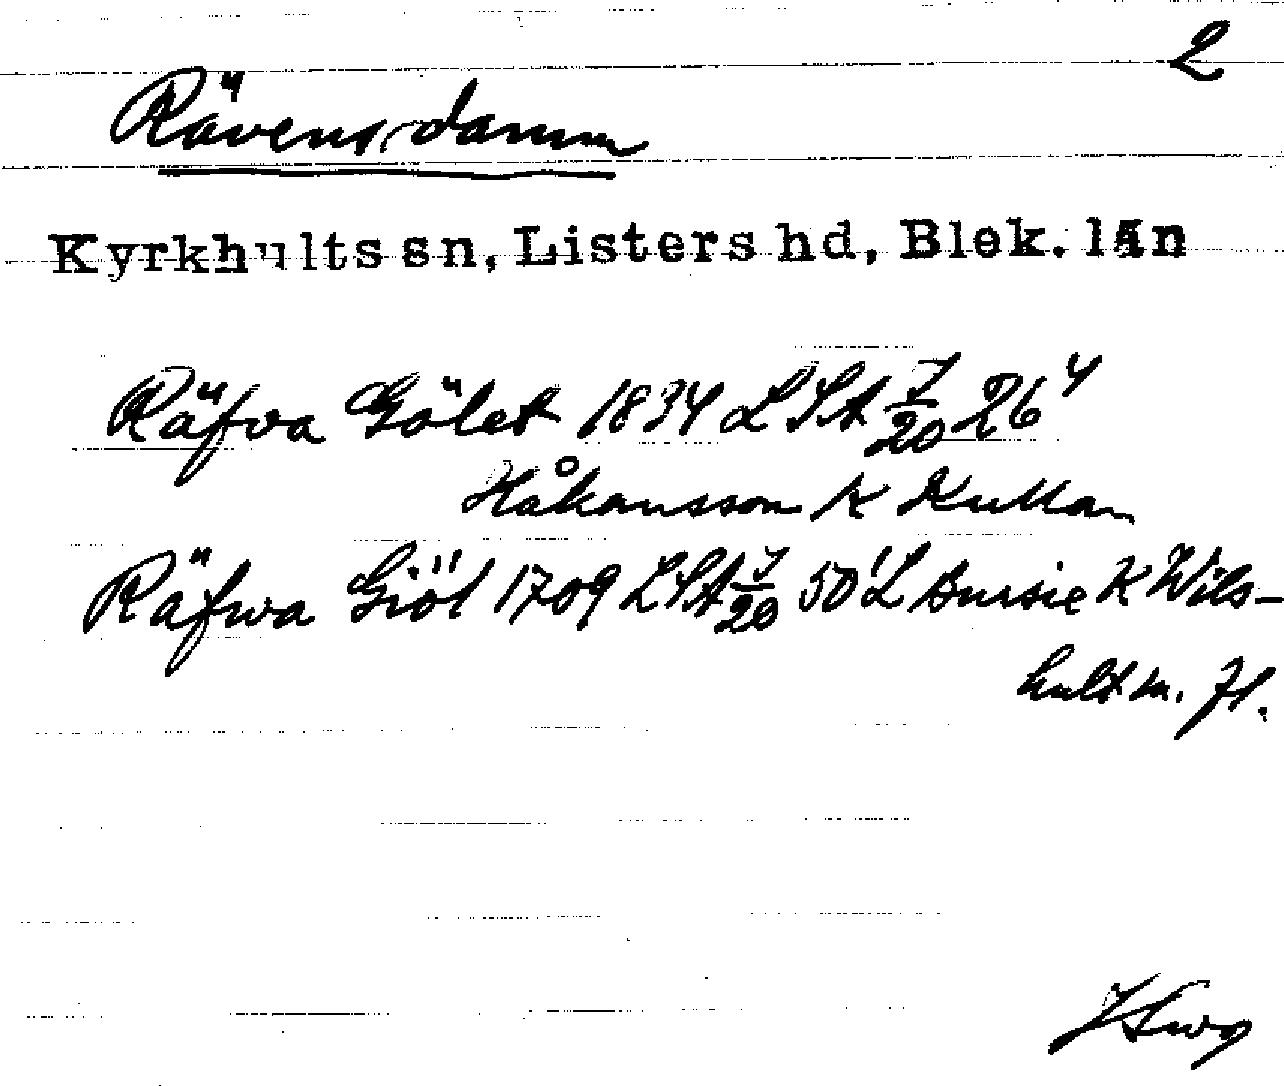 2
Rävens damm
Kyrkhults sn, Listers hd, Blek. län
Räfva Gölet 1834 LSA J/20 26⁴
Håkansson K Kullan
Räfwa Giöl 1709 LSA J/20 50¹ L Bursie K Wils-
hult m. fl.